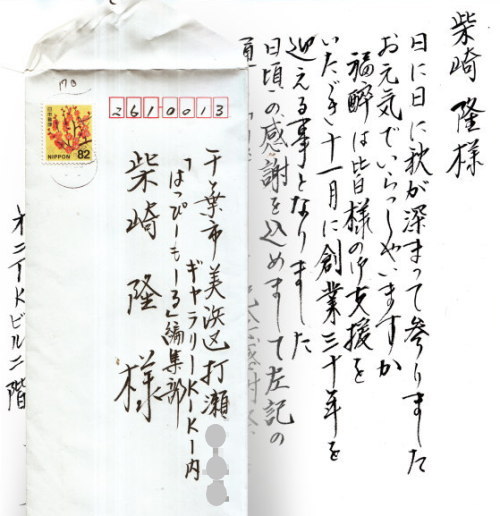 柴崎 隆様
日に日に秋が深まって参りました
お元気でいらっしゃいますか
福酔は皆様の御支援を
いただき十一月に創業三十年を
迎える事となりました
日頃の感謝を込めまして左記の
2610013
千葉市美浜区打瀬
ギャラリーKIKI内
「はっぴーもーる」編集部
柴崎 隆 様
日本郵便
NIPPON 82
オニTKビル二階